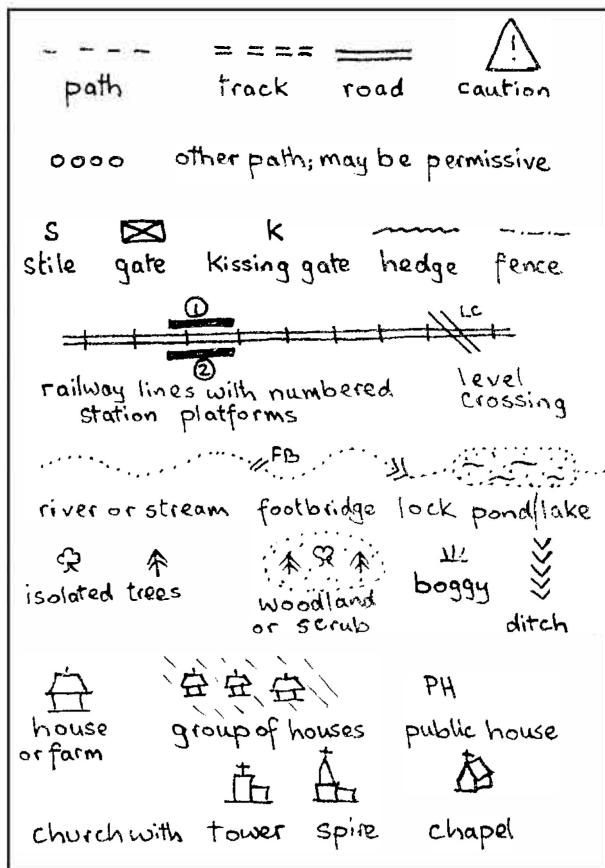 path track road caution
!
other path; may be permissive
S K
stile gate kissing gate hedge fence
1
LC
2
railway lines with numbered
station platforms
level
crossing
FB
river or stream footbridge lock pond/lake
isolated trees
woodland
or scrub
boggy
ditch
PH
house
or farm
group of houses
public house
church with tower spire chapel